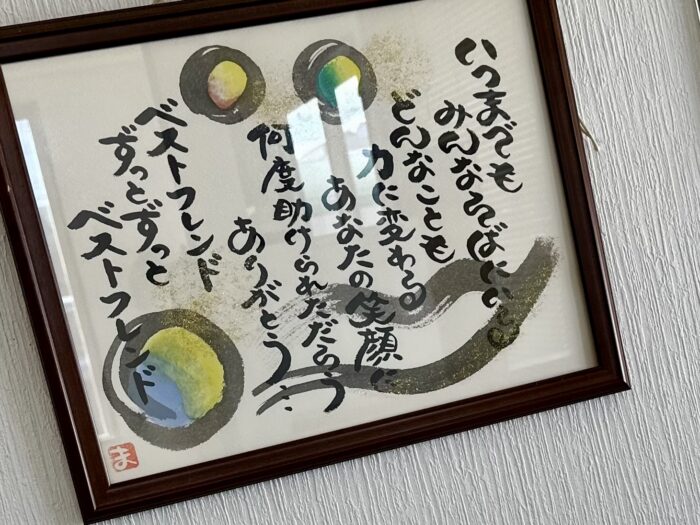 いつまでも
みんなそばにいる
どんなことも
力に変わる
あなたの笑顔に
何度助けられただろう
ありがとう‥
ベストフレンド
ずっとずっと
ベストフレンド
ま